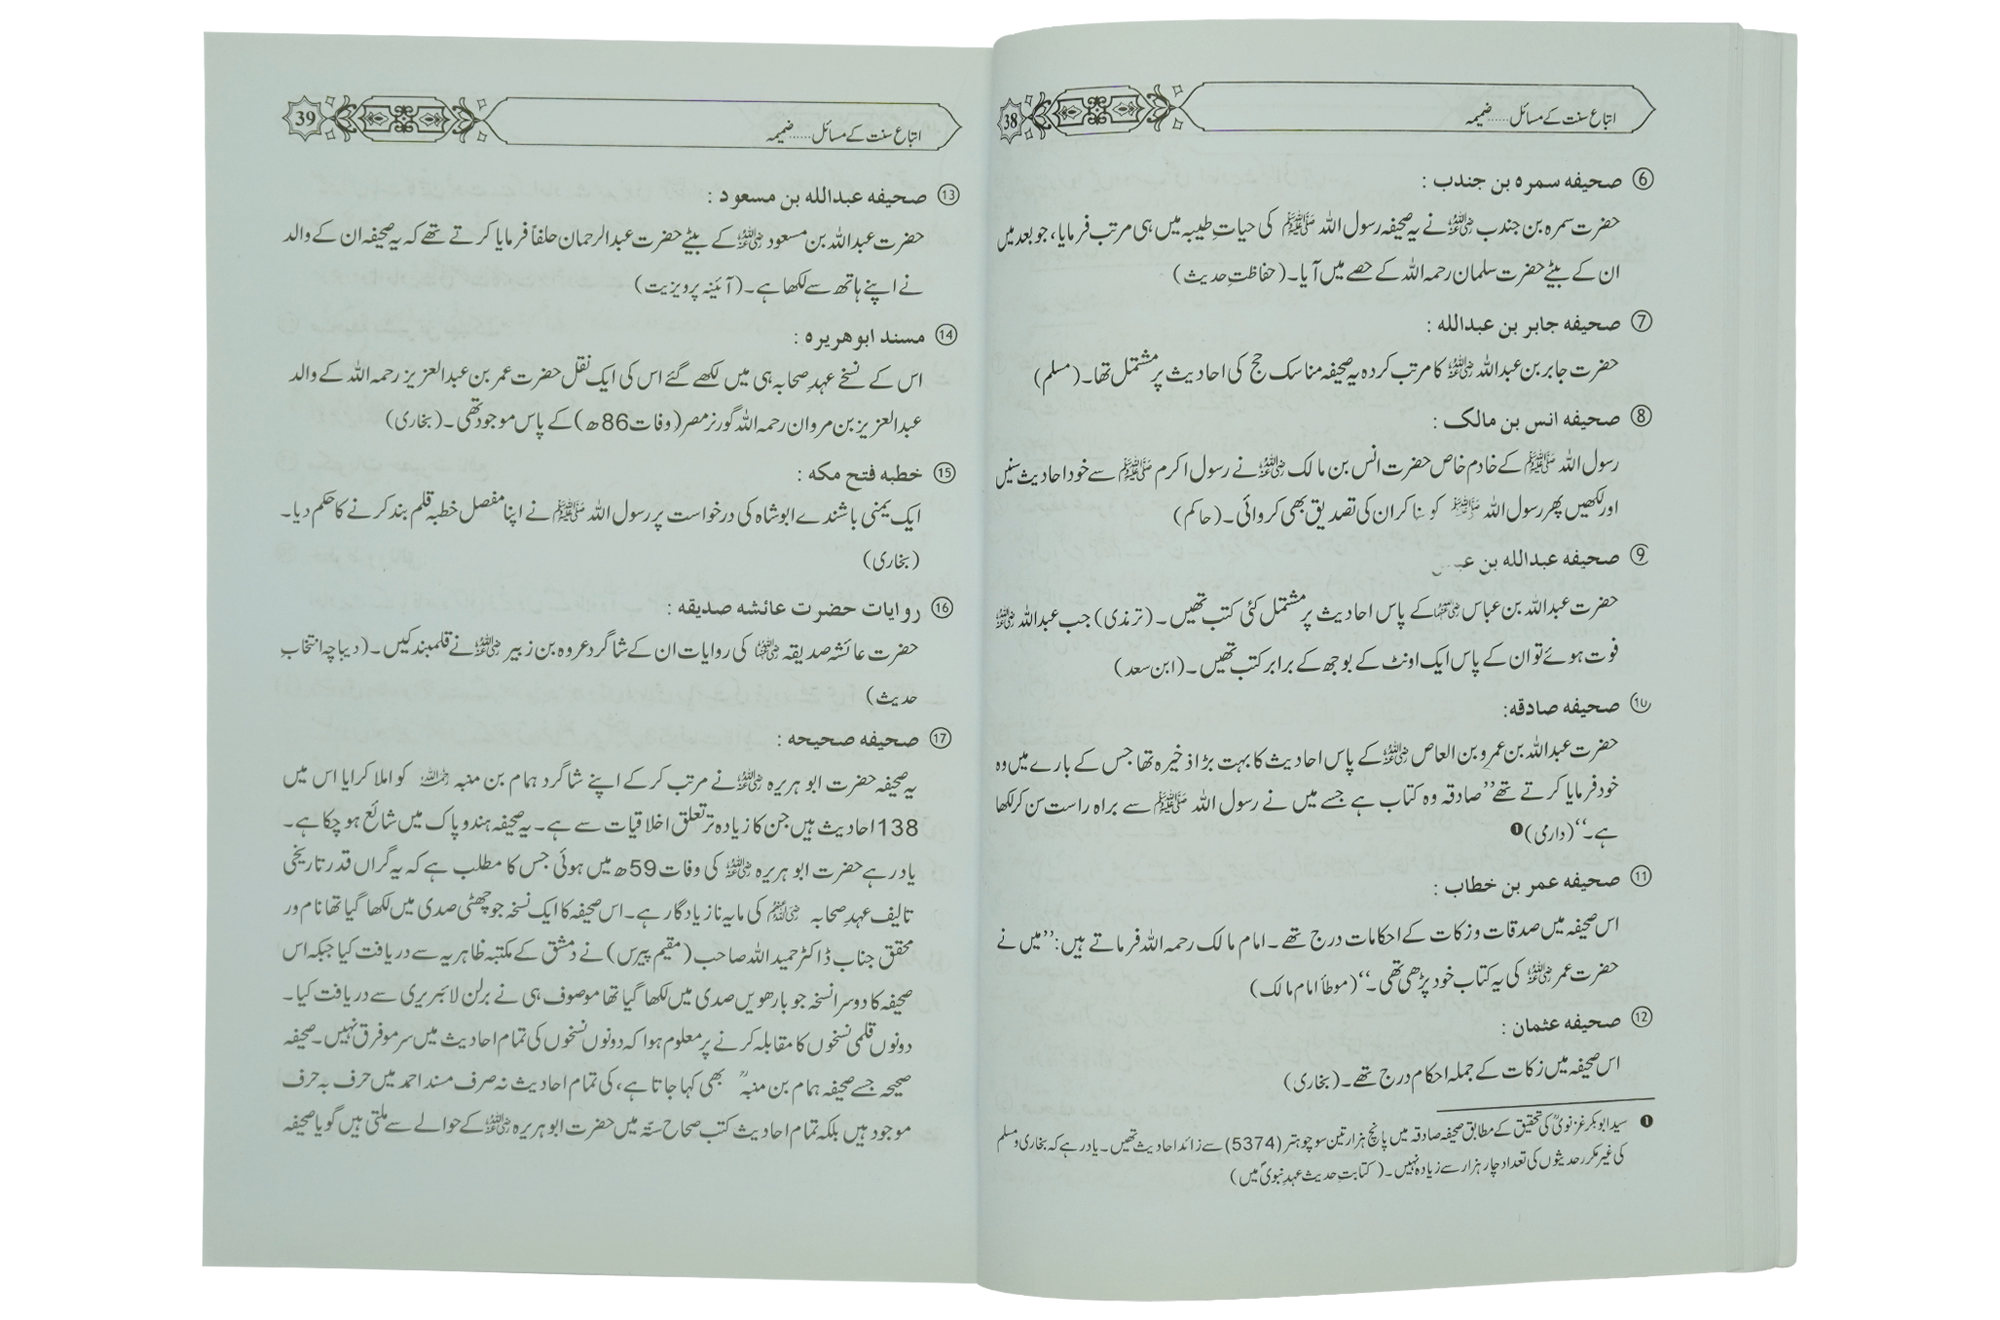 38
اتباع سنت کے مسائل......ضمیمہ
⑥ صحیفہ سمرہ بن جندب :
حضرت سمرہ بن جندب رضی اللہ عنہ نے یہ صحیفہ رسول اللہ ﷺ کی حیاتِ طیبہ میں ہی مرتب فرمایا، جو بعد میں
ان کے بیٹے حضرت سلمان رحمہ اللہ کے حصے میں آیا۔ (حفاظتِ حدیث)
⑦ صحیفہ جابر بن عبداللہ :
حضرت جابر بن عبداللہ رضی اللہ عنہ کا مرتب کردہ یہ صحیفہ مناسک حج کی احادیث پر مشتمل تھا۔ (مسلم)
⑧ صحیفہ انس بن مالک :
رسول اللہ ﷺ کے خادم خاص حضرت انس بن مالک رضی اللہ عنہ نے رسول اکرم ﷺ سے خود احادیث سنیں
اور لکھیں پھر رسول اللہ ﷺ کو سنا کر ان کی تصدیق بھی کروائی۔ (حاکم)
⑨ صحیفہ عبداللہ بن
حضرت عبداللہ بن عباس رضی اللہ عنہما کے پاس احادیث پر مشتمل کئی کتب تھیں۔ (ترمذی) جب عبداللہ رضی اللہ عنہ
فوت ہوئے تو ان کے پاس ایک اونٹ کے بوجھ کے برابر کتب تھیں۔ (ابن سعد)
⑩ صحیفہ صادقہ:
حضرت عبداللہ بن عمرو بن العاص رضی اللہ عنہ کے پاس احادیث کا بہت بڑا ذخیرہ تھا جس کے بارے میں وہ
خود فرمایا کرتے تھے ’’صادقہ وہ کتاب ہے جسے میں نے رسول اللہ ﷺ سے براہ راست سن کر لکھا
ہے۔‘‘ (دارمی) ❶
⑪ صحیفہ عمر بن خطاب :
اس صحیفہ میں صدقات و زکات کے احکامات درج تھے۔ امام مالک رحمہ اللہ فرماتے ہیں: ’’میں نے
حضرت عمر رضی اللہ عنہ کی یہ کتاب خود پڑھی تھی۔‘‘ (موطأ امام مالک)
⑫ صحیفہ عثمان :
اس صحیفہ میں زکات کے جملہ احکام درج تھے۔ (بخاری)
❶ سید ابوبکر غزنویؒ کی تحقیق کے مطابق صحیفہ صادقہ میں پانچ ہزار تین سو چوہتر (5374) سے زائد احادیث تھیں۔ یاد رہے کہ بخاری و مسلم
کی غیر مکرر حدیثوں کی تعداد چار ہزار سے زیادہ نہیں۔ (کتابتِ حدیث عہدِ نبویؐ میں)
39
اتباع سنت کے مسائل......ضمیمہ
⑬ صحیفہ عبداللہ بن مسعود :
حضرت عبداللہ بن مسعود رضی اللہ عنہ کے بیٹے حضرت عبدالرحمان حلفاً فرمایا کرتے تھے کہ یہ صحیفہ ان کے والد
نے اپنے ہاتھ سے لکھا ہے۔ (آئینہ پرویزیت)
⑭ مسند ابوھریرہ :
اس کے نسخے عہدِ صحابہ ہی میں لکھے گئے اس کی ایک نقل حضرت عمر بن عبدالعزیز رحمہ اللہ کے والد
عبدالعزیز بن مروان رحمہ اللہ گورنر مصر (وفات 86ھ) کے پاس موجود تھی۔ (بخاری)
⑮ خطبہ فتح مکہ :
ایک یمنی باشندے ابوشاہ کی درخواست پر رسول اللہ ﷺ نے اپنا مفصل خطبہ قلم بند کرنے کا حکم دیا۔
(بخاری)
⑯ روایات حضرت عائشہ صدیقہ :
حضرت عائشہ صدیقہ رضی اللہ عنہا کی روایات ان کے شاگرد عروہ بن زبیر رضی اللہ عنہ نے قلمبند کیں۔ (دیباچہ انتخابِ
حدیث)
⑰ صحیفہ صحیحہ :
یہ صحیفہ حضرت ابوہریرہ رضی اللہ عنہ نے مرتب کرکے اپنے شاگرد ہمام بن منبہ رحمہ اللہ کو املا کرایا اس میں
138 احادیث ہیں جن کا زیادہ تر تعلق اخلاقیات سے ہے۔ یہ صحیفہ ہندوپاک میں شائع ہو چکا ہے۔
یاد رہے حضرت ابوہریرہ رضی اللہ عنہ کی وفات 59ھ میں ہوئی جس کا مطلب ہے کہ یہ گراں قدر تاریخی
تالیف عہدِ صحابہ رضی اللہ عنہم کی مایہ ناز یادگار ہے۔ اس صحیفہ کا ایک نسخہ جو چھٹی صدی میں لکھا گیا تھا نام ور
محقق جناب ڈاکٹر حمید اللہ صاحب (مقیم پیرس) نے دمشق کے مکتبہ ظاہریہ سے دریافت کیا جبکہ اس
صحیفہ کا دوسرا نسخہ جو بارھویں صدی میں لکھا گیا تھا موصوف ہی نے برلن لائبریری سے دریافت کیا۔
دونوں قلمی نسخوں کا مقابلہ کرنے پر معلوم ہوا کہ دونوں نسخوں کی تمام احادیث میں سر مو فرق نہیں۔ صحیفہ
صحیحہ جسے صحیفہ ہمام بن منبہؒ بھی کہا جاتا ہے، کی تمام احادیث نہ صرف مسند احمد میں حرف بہ حرف
موجود ہیں بلکہ تمام احادیث کتب صحاح ستّہ میں حضرت ابوہریرہ رضی اللہ عنہ کے حوالے سے ملتی ہیں گویا صحیفہ